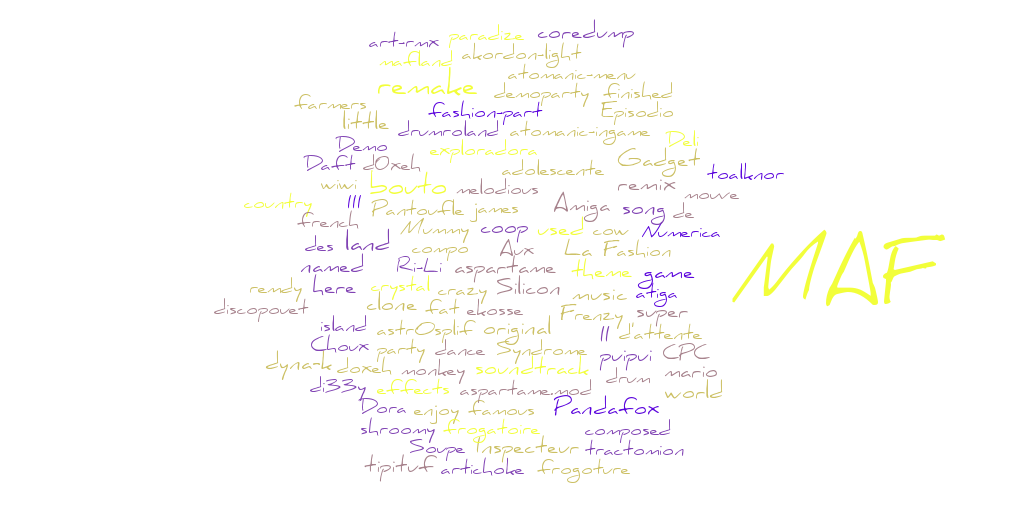 art-rmx paradize coredump
mafland akordon-light
atomanic-menu
remake demoparty finished
farmers fashion-part Episodio
little drumroland atomanic-ingame
Demo exploradora Deli
Daft dOxeh adolescente Gadget toalknor
wiwi bouto melodious remix mouve
country III Pantoufle james Amiga song de
french Mummy coop used cow Numerica
des land compo Aux La Fashion
named Ri-Li aspartame theme game
MAF
remdy here crystal crazy Silicon music atiga
discopouet clone fat ekosse Frenzy super
island astrOsplif original II d'attente
Choux party dance Syndrome puipui CPC
dynark doxeh monkey soundtrack drum mario
di33y effects aspartame.mod world
Dora enjoy famous Pandafox
shroomy frogatoire composed
Soupe Inspecteur tractomion
tipituf artichoke frogoture